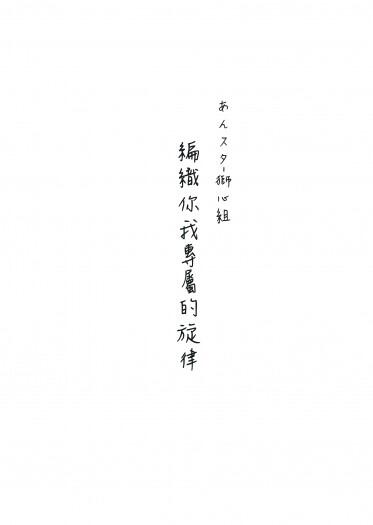 あんスター獅心組
編織你我專屬的旋律